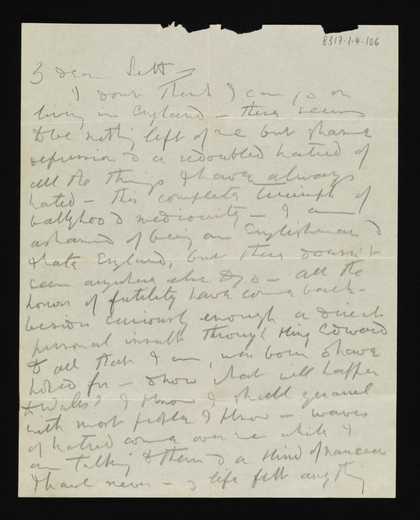 8317.1.4.106
dear
I don't think I can go on
living in England – there seems
to be nothing left of me but shame
depression & a redoubled hatred of
all the things I have always
hated – this complete triumph of
ballyhoo & mediocrity – I am
ashamed of being an Englishman &
I hate England, but there doesn't
seem anywhere else to go – all the
horrors of futility have come back –
besides curiously enough a direct
personal insult through King Edward
to all that I am, & have
hoped for – & what will happen
to Wales? I know I shall quarrel
with most people I know – waves
of hatred come over me while I
am talking to them & a kind of nausea
I have never in life felt